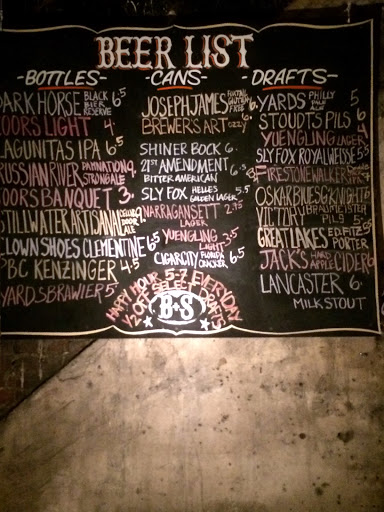 BEER LIST
-BOTTLES-
DARK HORSE BLACK BIER RESERVE 6.5
COORS LIGHT 4.
LAGUNITAS IPA 6.5
RUSSIAN RIVER DAMNATION STRONG ALE 9.
COORS BANQUET 3.
STILLWATER ARTISANAL CELLAR DOOR ALE
CLOWN SHOES CLEMENTINE 6.5
PBC KENZINGER 4.5
YARDS BRAWLER 5
-CANS-
JOSEPH JAMES FOXTAIL GLUTEN FREE 6.
BREWER'S ART OZZY 6.
SHINER BOCK 6.
21ST AMENDMENT 6.
BITTER AMERICAN
SLY FOX HELLES GOLDEN LAGER 5.5
NARRAGANSETT 2.75
LAGER
YUENGLING LIGHT 3.5
CIGAR CITY FLORIDA CRACKER 6.5
-DRAFTS-
YARDS PHILLY PALE ALE 5
STOUDTS PILS 6
YUENGLING LAGER 4
SLY FOX ROYAL WEISSE 5.5
FIRESTONE WALKER
OSKAR BLUES G'KNIGHT
VICTORY BRAUMEISTER PILS 5
GREAT LAKES ED FITZ PORTER
JACK'S HARD APPLE CIDER 6
LANCASTER 6.
MILK STOUT
HAPPY HOUR 5-7 EVERYDAY
1/2 OFF SELECT DRAFTS
B+S